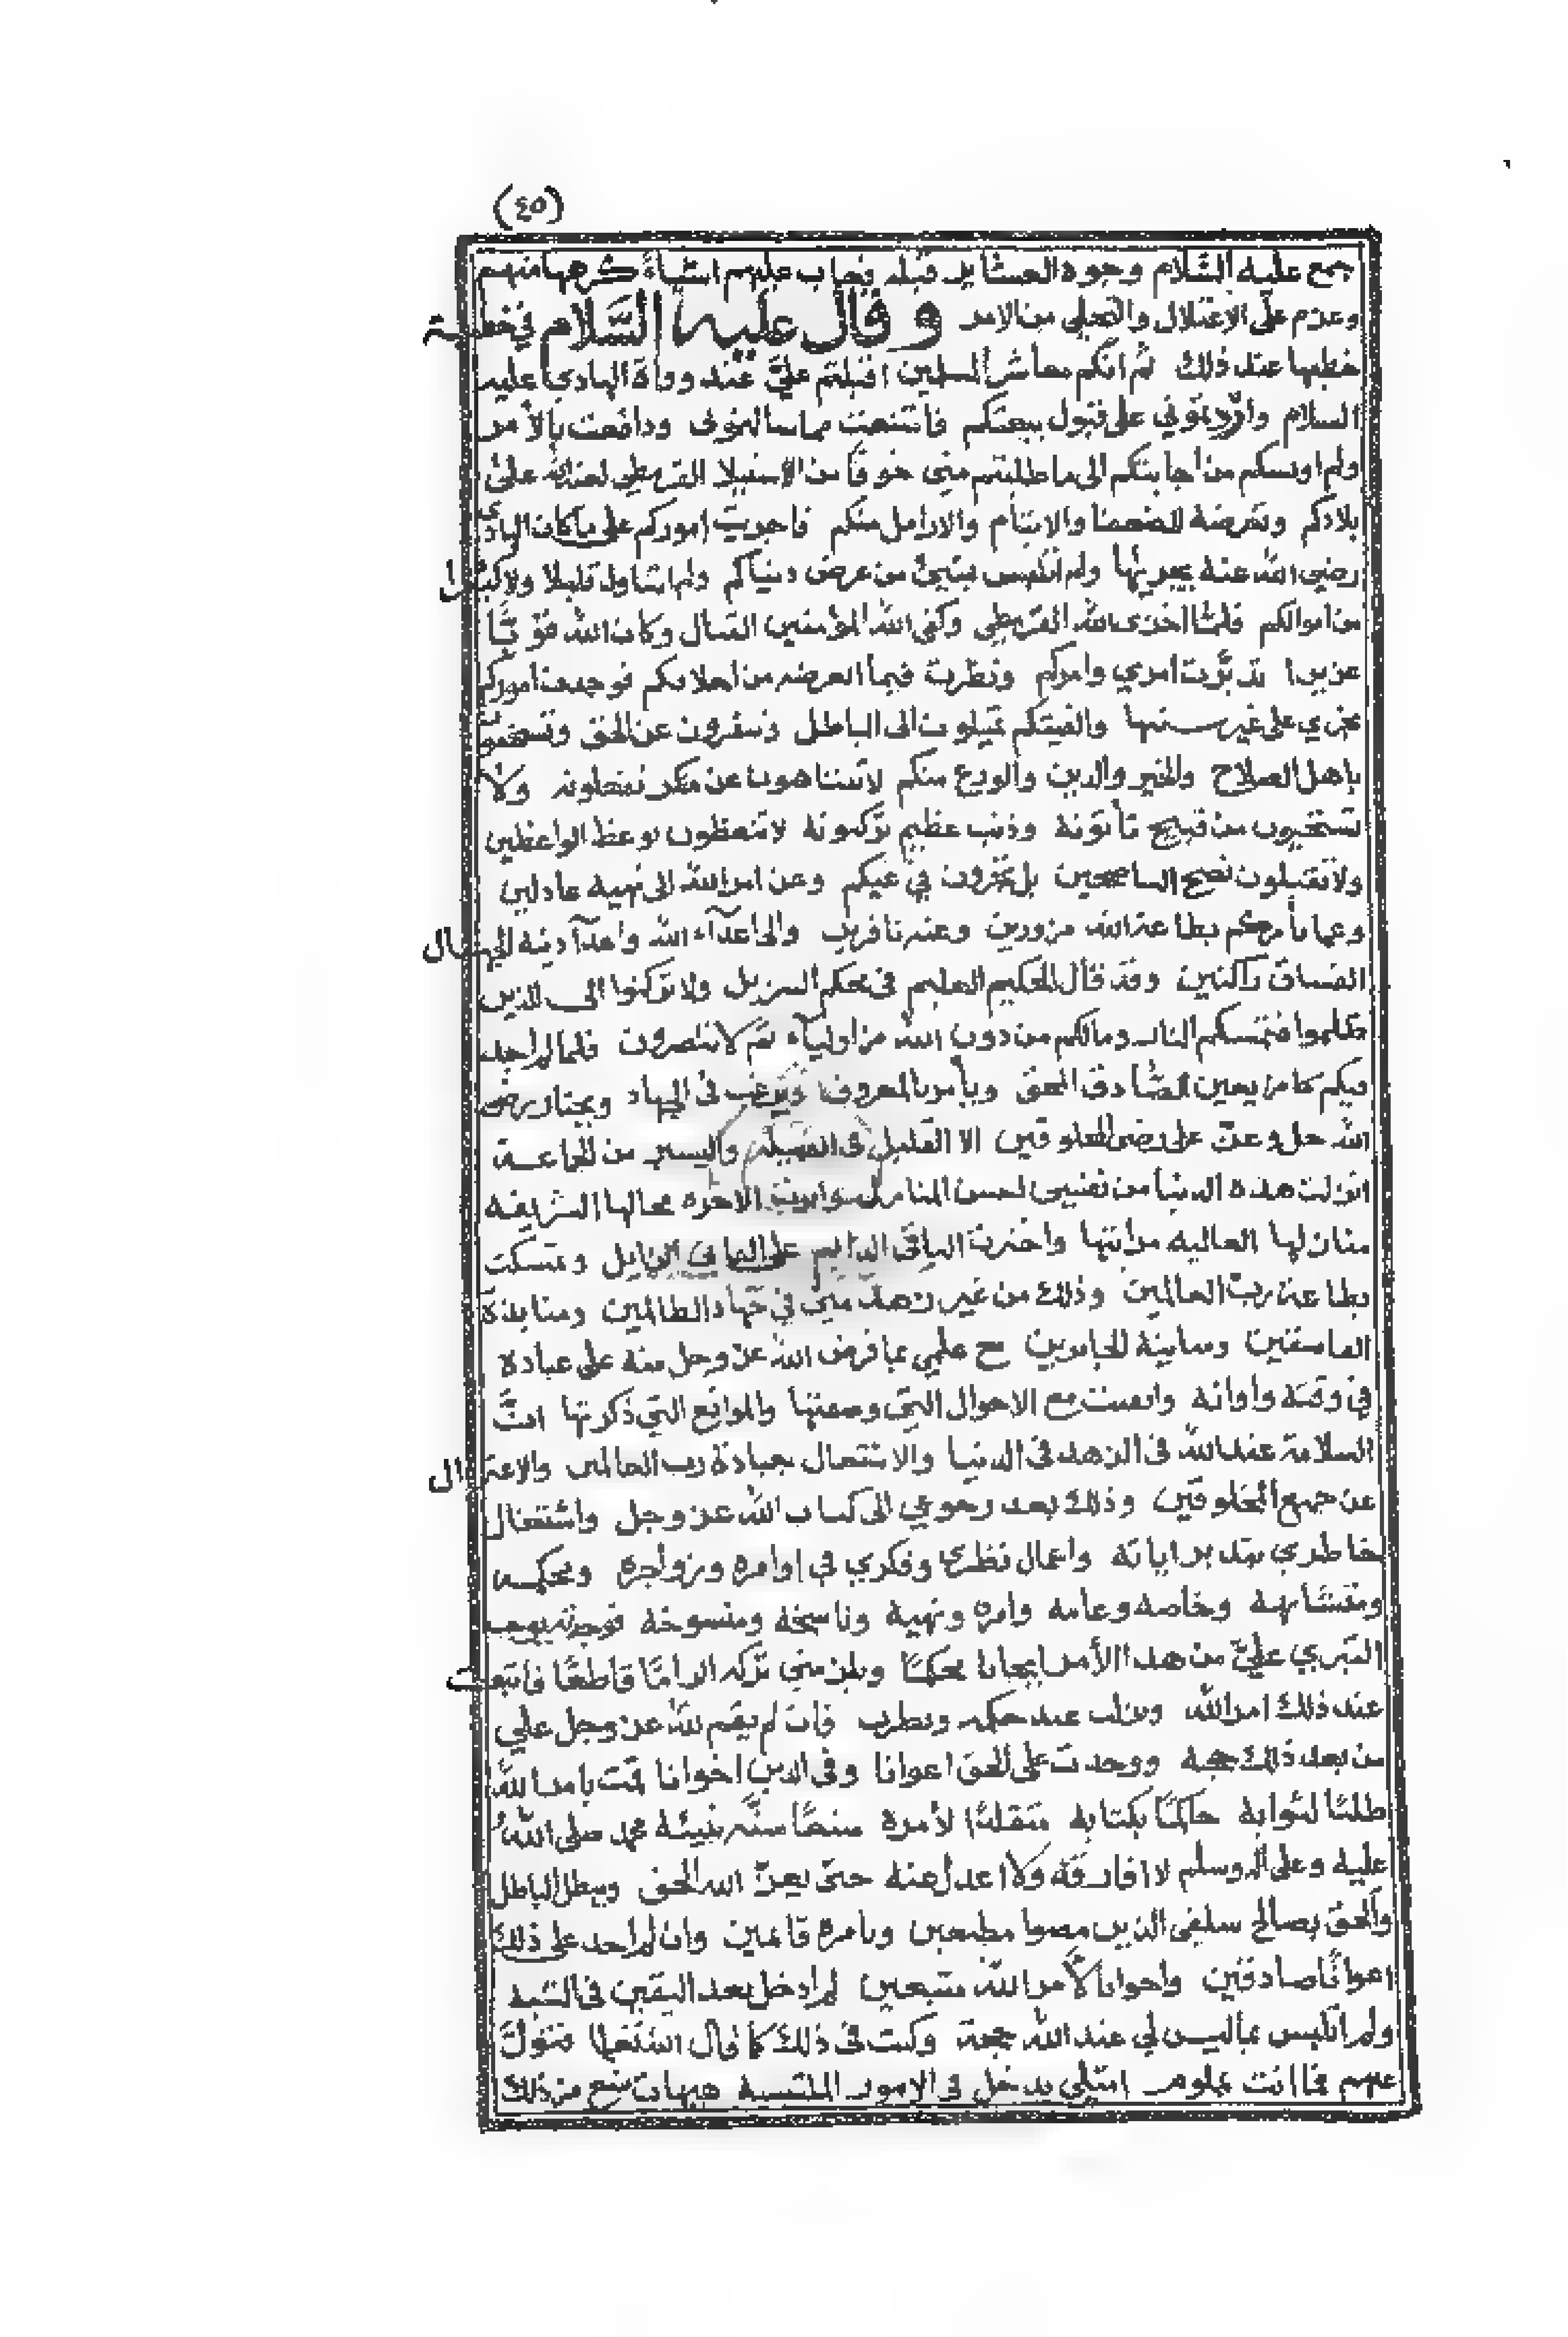 (٤٥)
جمع عليه السلام وجوه العشاير قبله فعاب عليهم اشياءً كرهها منهم
وعزم على الاعتزال والتخلي من الامر وقال عليه السلام في خطبة
خطبها عند ذلك ثم انكم معاشر المسلمين اقبلتم عليَّ عند وفاة الهادي عليه
السلام واردتموني على قبول بيعتكم فامتنعت مما سالتموني ودافعت بالأمر
ولم اويسكم من اجابتكم الى ما طلبتم مني خوفًا من الاستيلا القرمطي لعنه الله على
بلادكم وتعرضه للضعفا والايتام والارامل منكم فاجريت اموركم على ما كان الهادي
رضي الله عنه يجريها ولم اتلبس بشيئ من عرض دنياكم ولم اتناول قليلا ولا كثيرا
من اموالكم فلما اخزى الله القرمطي وكفى الله المؤمنين القتال وكان الله قويًّا
عزيزا تدبّرت امري وامركم ونظرت فيما اتعرضه من اخلاقكم فوجدت اموركم
تجري على غير سننها والفيتكم تميلون الى الباطل وتنفرون عن الحق وتستخفون
باهل الصلاح والخير والدين والورع منكم لا تتناهون عن منكر تفعلونه ولا
تستحيون من قبيح تأتونه وذنب عظيم تركبونه لا تتعظون بوعظ الواعظين
ولا تقبلون نصح الناصحين بل تجرون في غيكم وعن امر الله الى نهيه عادلين
وعما يأمركم بطاعة الله مزورين وعنه نافرين والى اعدآء الله واعدآء دينه الجهال
الفساق راكنين وقد قال الحكيم العليم في محكم التنزيل ولا تركنوا الى الذين
ظلموا فتمسكم النار ومالكم من دون الله من اوليآء ثم لا تنصرون فلما لم اجد
فيكم من يعين الصادق المحق ويأمر بالمعروف ويرغب في الجهاد ويختار رضى
الله جل وعزّ على رضى المخلوقين الا القليل في القبيلة واليسير من الجماعة
انزلت هذه الدنيا من نفسي اخس المنازل وآثرت الاخره محالها الشريفه
منازلها العاليه مراتبها واخترت الباقي الدايم على الفاني الزايل وتمسكت
بطاعة ربّ العالمين وذلك من غير زهد مني في جهاد الظالمين ومنابذة
الفاسقين ومباينة الجايرين مع علمي بما فرض الله عز وجل منه على عباده
في وقته واوانه وايقنت مع الاحوال التي وصفتها والموانع التي ذكرتها انَّ
السلامة عند الله في الزهد في الدنيا والاشتغال بعبادة رب العالمين والاعتزال
عن جميع المخلوقين وذلك بعد رجوعي الى كتاب الله عز وجل واشتغال
خاطري بتدبر اياته واعمال نظري وفكري في اوامره وزواجره ومحكمه
ومتشابهه وخاصه وعامه وامره ونهيه وناسخه ومنسوخه فوجدته يوجب
التبري عليَّ من هذا الأمر ايجابا محكمًا ويلزمني تركه الزامًا قاطعًا فاتبعت
عند ذلك امر الله ونزلت عند حكمه ونظرت فان لم يقم لله عز وجل علي
من بعد ذلك حجه ووجدت على الحق اعوانا وفي الدين اخوانا قمت بامر الله
طلبًا لثوابه حاكمًا بكتابه متقلدًا لأمره متبعًا سنّة نبيئه محمد صلى الله
عليه وعلى اله وسلم لا افارقه ولا اعدل عنه حتى يعزّ الله الحق ويبطل الباطل
والحق بصالح سلفي الذين مضوا مطيعين وبامره قائمين وان لم اجد على ذلك
اعوانًا صادقين واخوانا لأمر الله متبعين لم ادخل بعد اليقين في الشبهه
ولم اتلبس بما ليس لي عند الله حجة وكنت في ذلك كما قال الله تعالى فتولَّ
عنهم فما انت بملوم امثلي يدخل في الامور الملتبسة هيهات منع من ذلك